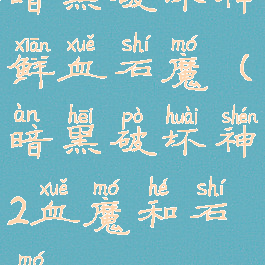 暗黑破坏神
xiān xuě shí mó
鲜血石魔（
àn hēi pò huài shén
暗黑破坏神
xuě mó hé shí
2血魔和石
mó